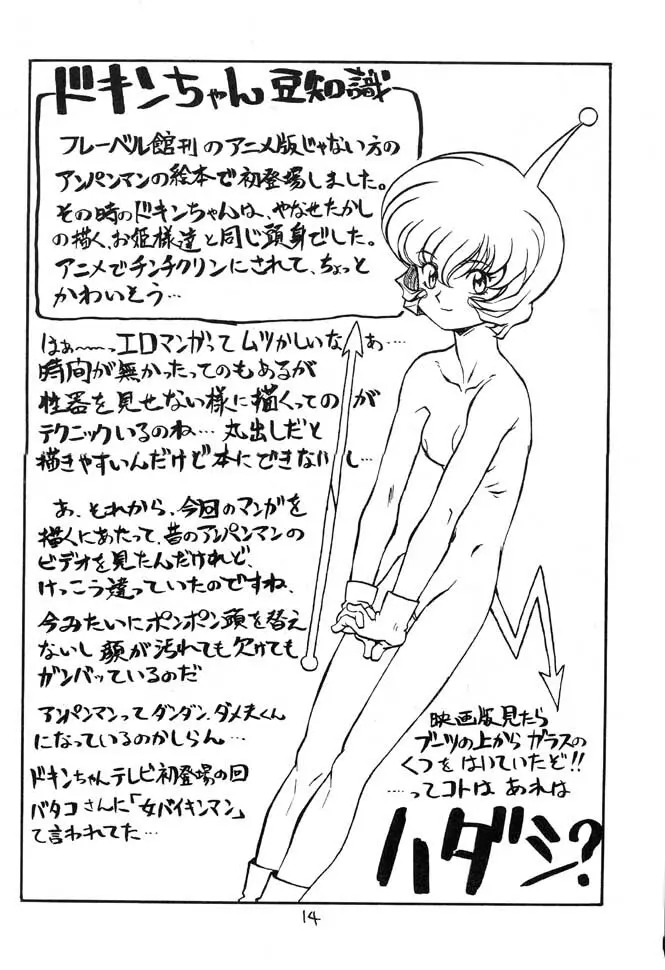 ドキンちゃん 豆知識
フレーベル館刊のアニメ版じゃない方の
アンパンマンの絵本で初登場しました。
その時のドキンちゃんは、やなせたかし
の描く、お姫様達と同じ頭身でした。
アニメでチンチクリンにされて、ちょっと
かわいそう…
はぁ〜〜っエロマンガってムツかしいなぁ…
時間が無かったってのもあるが
性器を見せない様に描くってのが
テクニックいるのね… 丸出しだと
描きやすいんだけど本にできないし…
あ、それから、今回のマンガを
描くにあたって、昔のアンパンマンの
ビデオを見たんだけれど、
けっこう違っていたのですね、
今みたいにポンポン頭を替え
ないし顔が汚れても欠けても
ガンバっているのだ
アンパンマンってダンダン、ダメ夫くん
になっているのかしらん…
ドキンちゃんテレビ初登場の回
バタコさんに「女バイキンマン」
て言われてた…
映画版見たら
ブーツの上からガラスの
くつをはいていたぞ!!
…ってコトは あれは
ハダシ?
14